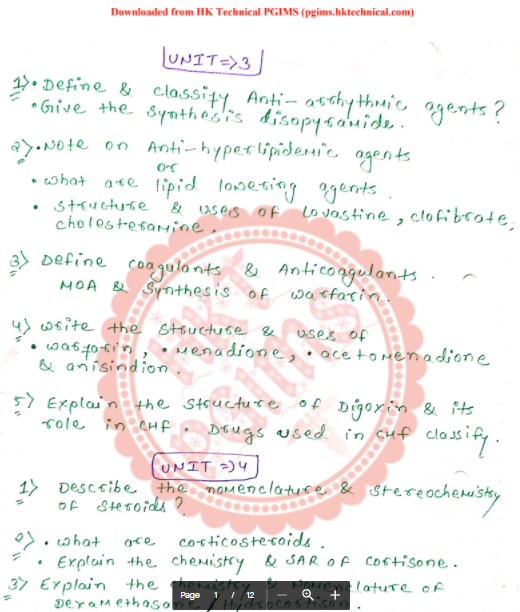 Downloaded from HK Technical PGIMS (pgims.hktechnical.com)
UNIT => 3
1) • Define & classify Anti-arrhythmic agents?
• Give the synthesis disopyramide.
2) • Note on Anti-hyperlipidemic agents
or
• what are lipid lowering agents.
• structure & uses of Lovastine, clofibrate,
cholesteramine.
3) Define coagulants & Anticoagulants.
MOA & Synthesis of warfarin.
4) write the structure & uses of
• warfarin, • Menadione, • acetomenadione
& anisindion.
5) Explain the structure of Digoxin & its
role in CHF • Drugs used in CHF classify.
UNIT => 4
1) Describe the nomenclature & stereochemistry
of steroids?
2) • what are corticosteroids.
• Explain the chemistry & SAR of cortisone.
3) Explain the chemistry & Nomenclature of
Dexamethasone / Hydrocortison.
HKT
PGIMS
Page 1 / 12 − +